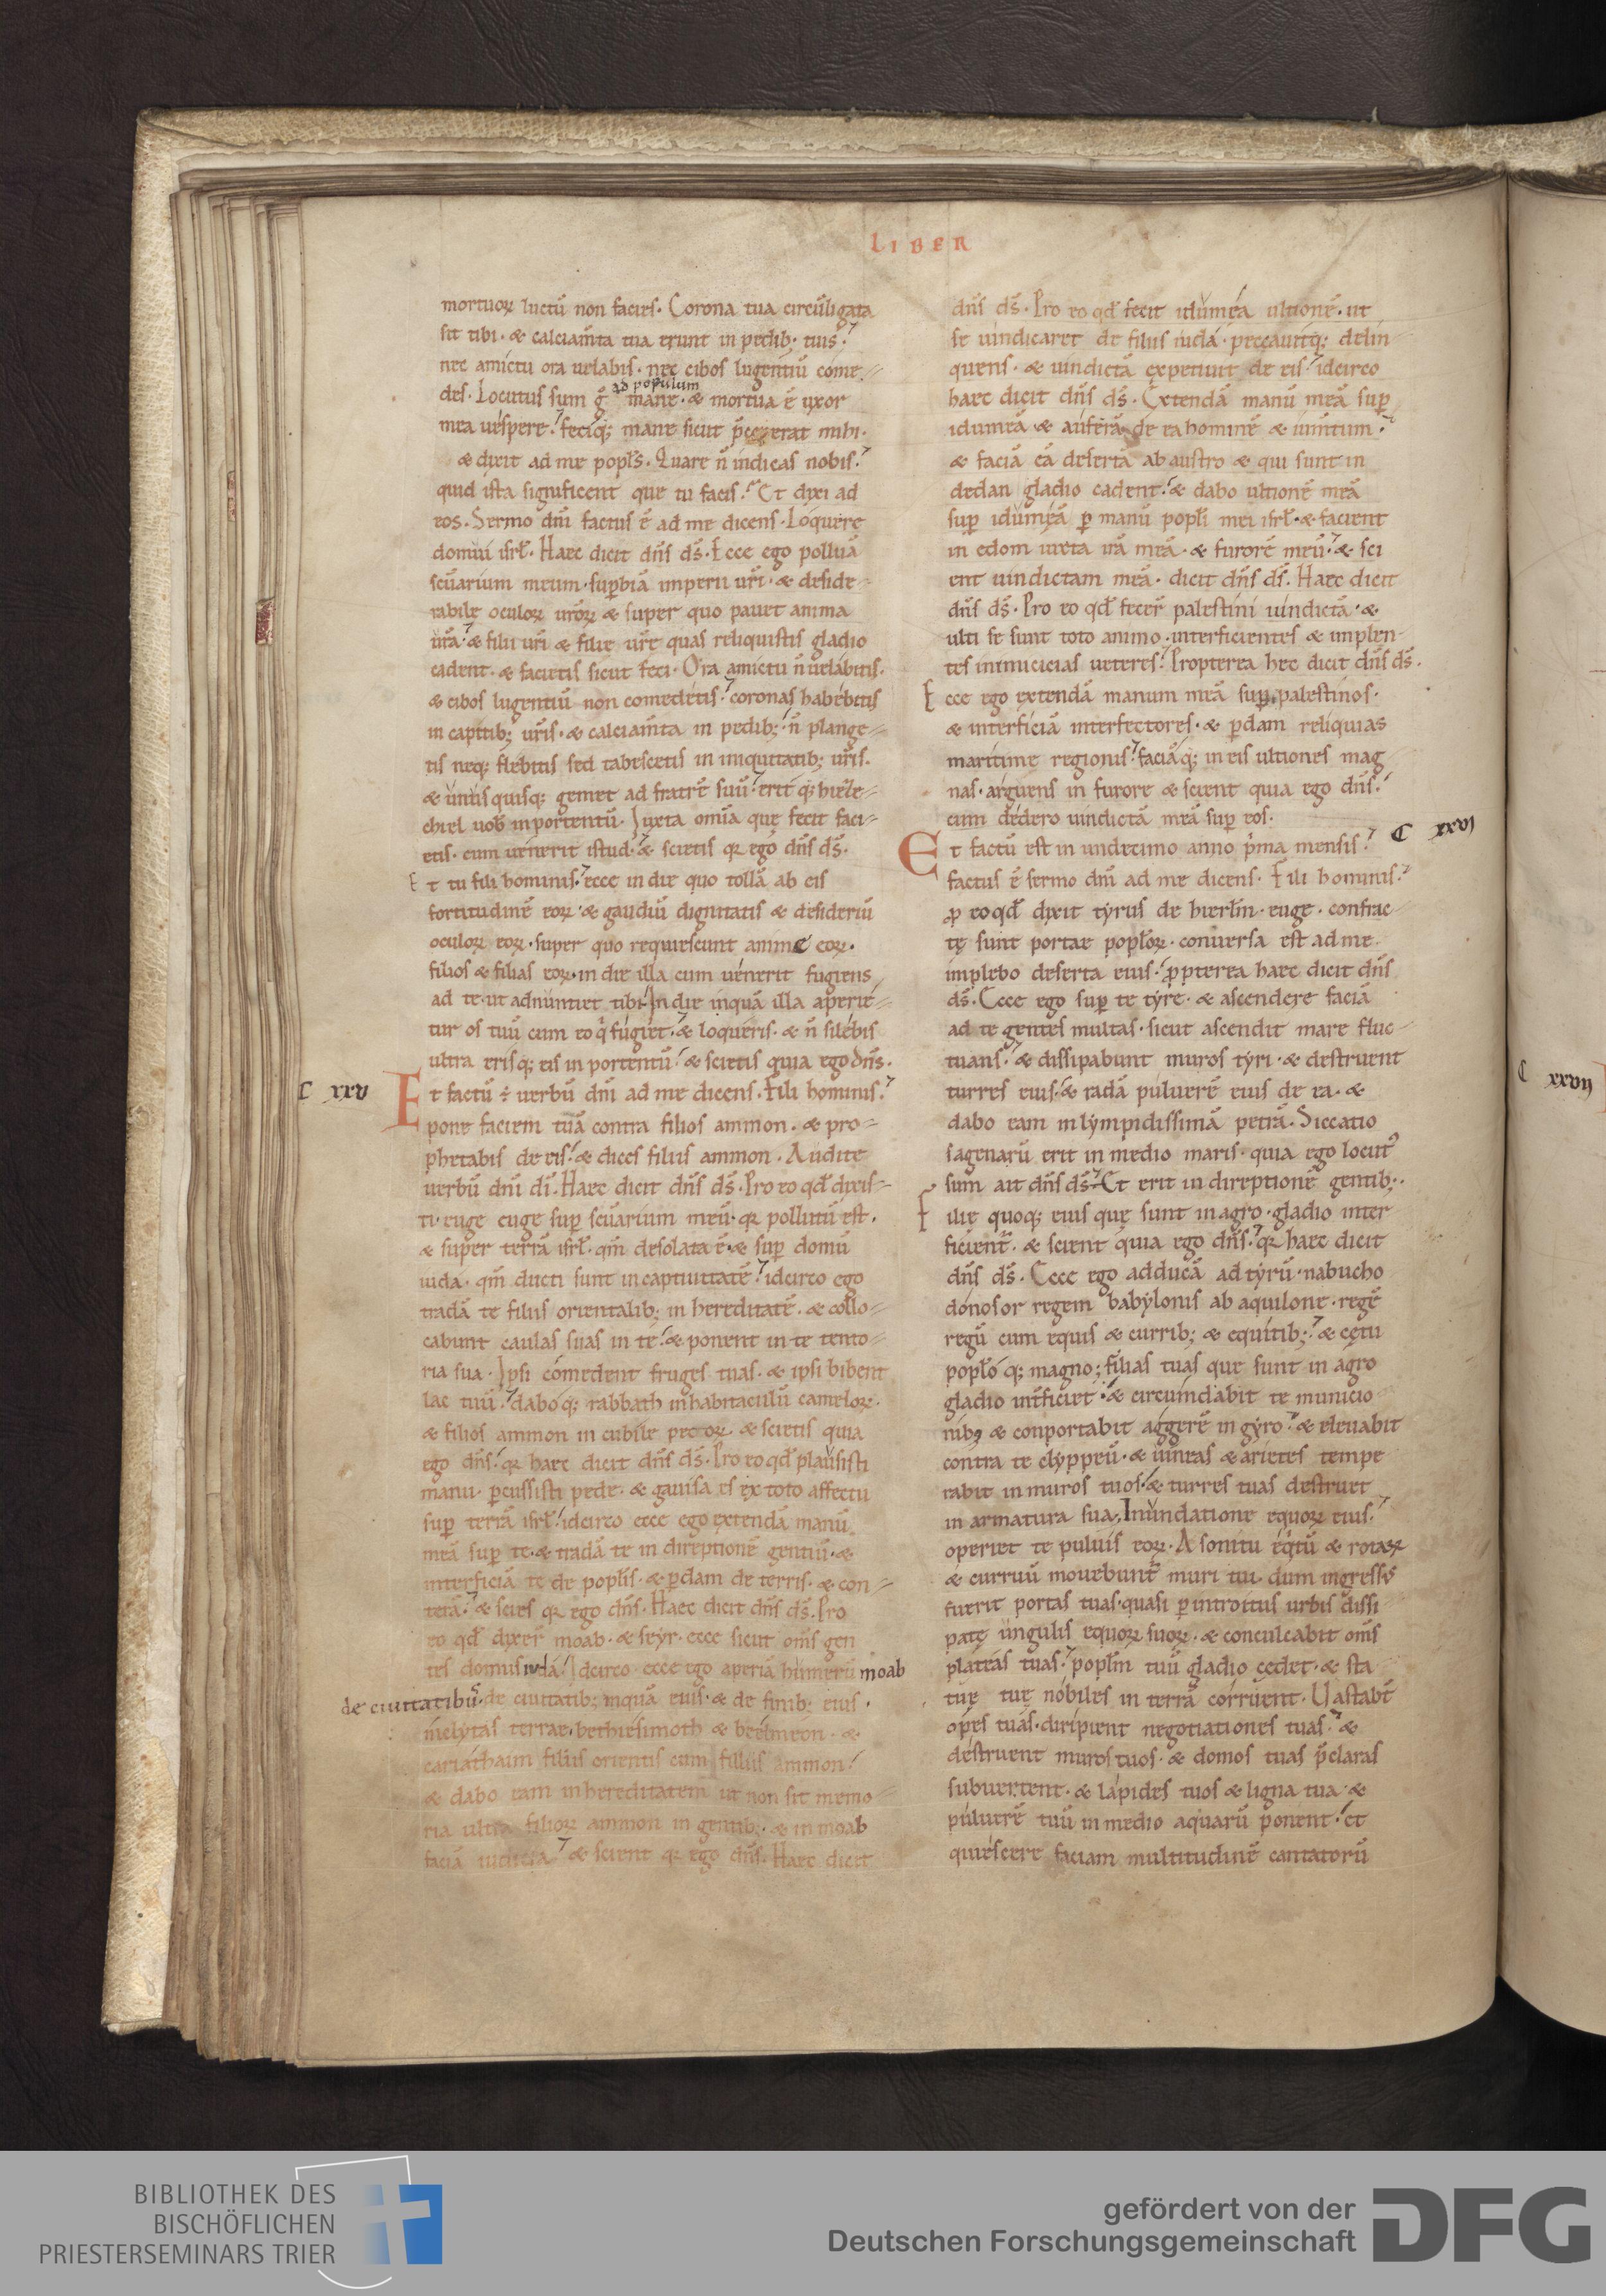 LIBER
mortuoꝝ luctū non facies. Corona tua circūligata
sit tibi. & calciam̄ta tua erunt in pedib; tuis.
nec amictu ora uelabis. nec cibos lugentiū come
des. Locutus sum g̊ ad populum mane. & mortua ē uxor
mea uéspere. feciq; mane sicut p̄ceperat mihi.
& dixit ad me popl̄s. Quare n̄ indicas nobis.
quid ista significent que tu facis. Et dixi ad
eos. Sermo dn̄i factus ē ad me dicens. Loquere
domui isrl̄. Haec dicit dn̄s ds̄. Ecce ego polluā
scūarium meum. suꝑbiā imperii ur̄i. & deside
rabile oculoꝝ uroꝝ & super quo pauet anima
ur̄a. & filii uri & filie ur̄e quas reliquistis gladio
cadent. & facietis sicut feci. Ora amictu n̄ uelábitis.
& cibos lugentiū non comedetis. coronas habébitis
in capitib; ur̄is. & calciam̄ta in pedib;. n̄ plange
tis neq; flébitis sed tabescetis in iniquitatib; ur̄is.
& unusquisq; gemet ad fratrē suū. erit q; hieze
chiel uob̄ in portentū. Iuxta om̄ia que fecit faci
etis. cum uenerit istud. & scietis qꝛ ego dn̄s ds̄.
Et tu fili hominis. ecce in die quo tollā ab eis
fortitudinē eoꝝ. & gaudiū dignitatis & desideriū
oculoꝝ eoꝝ. super quo requiescunt anime eoꝝ.
filios & filias eoꝝ. in die illa cum uénerit fugiens
ad te. ut adnuntiet tibi. In die inquā illa aperie
tur os tuū cum eo q̇ fúgiet. & loquéris. & n̄ silébis
ultra erisq; eis in portentū. & scietis quia ego dn̄s.
C xxv
Et factū ÷ uerbū dn̄i ad me dicens. Fili hominis.
pone faciem tuā contra filios ammon. & pro
phetabis de eis. & dices filiis ammon. Audite
uerbū dn̄i dī. Haec dicit dn̄s ds̄. Pro eo qd̄ dixis
ti. euge euge suꝑ scūarium meū. qꝛ pollutū est.
& super terrā isrl̄. qm̄ desolata ē. & suꝑ domū
iuda. qm̄ ducti sunt in captiuitatē. idcirco ego
tradā te filiis orientalib; in hereditatē. & collo
cabunt caulas suas in te. & ponent in te tento
ria sua. Ipsi cómedent fruges tuas. & ipsi bibent
lac tuū. dabóq; rabbath in habitaculū cameloꝝ.
& filios ammon in cubile pecoꝝ. & scietis quia
ego dn̄s. qꝛ haec dicit dn̄s ds̄. Pro eo qd̄ plausisti
manu. ꝑcussisti pede. & gauisa es ex toto affectu
suꝑ terrā isrl̄. idcirco ecce ego extendā manū
meā suꝑ te. & tradā te in direptionē gentiū. &
interficiā te de popl̄is. & ꝑdam de terris. & con
terā. & scies qꝛ ego dn̄s. Haec dicit dn̄s ds̄. Pro
eo qd̄ dixer̄ moab. & seyr. ecce sicut om̄s gen
tes domus iudá. Idcirco ecce ego aperiā humerū moab
de ciuitatibus. de ciuitatib; inquā eius. & de finib; eius.
inclytas terrae. bethiesimoth & beélmeon. &
cariáthaim filiis orientis cum filiis ammon.
& dabo eam in hereditatem ut non sit memo
ria ultra filioꝝ ammon in gentib;. & in moab
faciā iudicia. & scient qꝛ ego dn̄s. Haec dicit
dn̄s ds̄. Pro eo qd̄ fecit idumea ultionē. ut
se uindicaret de filiis iudá. peccauitq; delin
quens. & uindictā expetiuit de eis. idcirco
haec dicit dn̄s ds̄. Extendā manū meā suꝑ
idumeā & auferā de ea hominē & iumtum.
& faciā eā desertā ab austro & qui sunt in
dedan gladio cadent. & dabo ultionē meā
suꝑ idumeā ꝑ manū popl̄i mei isrl̄. & facient
in edom iuxta irā meā. & furorē meū. & sci
ent uindictam meā. dicit dn̄s ds̄. Haec dicit
dn̄s ds̄. Pro eo qd̄ fecer̄ palestini uindictā. &
ulti se sunt toto animo. interficientes & implen
tes inimicicias ueteres. Propterea hec dicit dn̄s ds̄.
Ecce ego extendā manum meā suꝑ palestinos.
& interficiā interfectores. & ꝑdam reliquias
maritime regionis. faciāq; in eis ultiones mag
nas. arguens in furore & scient quia ego dn̄s.
cum dédero uindictā meā suꝑ eos.
C xxvi
Et factū est in undecimo anno pͥma mensis.
factus ē sermo dn̄i ad me dicens. Fili hominis.
ꝓ eo qd̄ dixit tyrus de hierlm̄. euge. confrac
tę sunt portae popl̄oꝝ. conuersa est ad me
implebo deserta eius. ꝓpterea haec dicit dn̄s
ds̄. Ecce ego suꝑ te tyre. & ascendere faciā
ad te gentes multas. sicut ascendit mare fluc
tuans. & dissipabunt muros tyri. & destruent
turres eius. & radā puluerē eius de ea. &
dabo eam in lympidissimā petrā. Siccatio
sagenarū erit in medio maris. quia ego locutꝰ
sum ait dn̄s ds̄. Et erit in direptionē gentib;.
Filie quoq; eius quę sunt in agro. gladio inter
ficient̄. & scient quia ego dn̄s. qꝛ haec dicit
dn̄s ds̄. Ecce ego adducā ad tyrū. nabucho
donosor regem babylonis ab aquilone. regē
regū cum equis & currib; & equitib;. & cętu
popl̄óq; magno; filias tuas que sunt in agro
gladio int̄ficiet. & circuīndabit te munitio
nibꝰ & conportabit aggerē in gyro. & eleuabit
contra te clyppeū. & uineas & arietes tempe
rabit in muros tuos. & turres tuas destruet
in armatura sua. Inundatione equoꝝ eius.
operiet te puluis eoꝝ. A sonitu eq̇tū & rotaꝝ
& curruū mouebunt̄ muri tui. dum ingressꝰ
fuerit portas tuas. quasi ꝑ introitus urbis dissi
patę ungulis equoꝝ suoꝝ. & conculcabit om̄s
plateas tuas. popl̄m tuū gladio cędet. & sta
tuę tuę nóbiles in terrā córruent. Uastabt̄
opes tuas. diripient negotiationes tuas. &
déstruent muros tuos. & domos tuas p̄claras
subuertent. & lápides tuos & ligna tua. &
púluerē tuū in medio aquarū ponent. et
quiéscere faciam multitudinē cantatorū
C xxvii
BIBLIOTHEK DES
BISCHÖFLICHEN
PRIESTERSEMINARS TRIER
gefördert von der
Deutschen Forschungsgemeinschaft
DFG